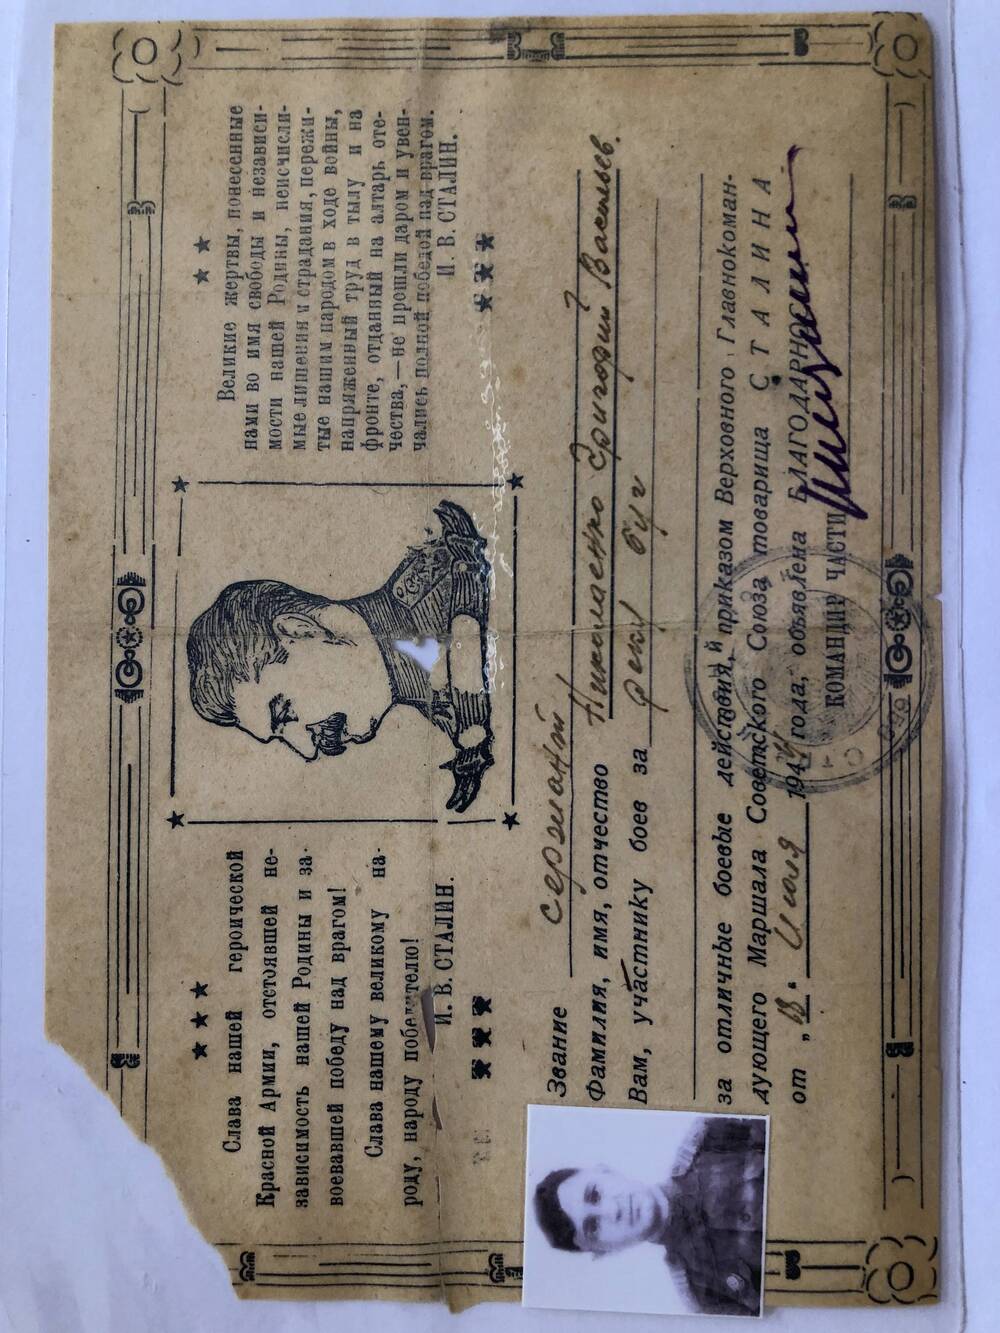 Слава нашей героической
Красной Армии, отстоявшей не-
зависимость нашей Родины и за-
воевавшей победу над врагом!
Слава нашему великому на-
роду, народу победителю!
И. В. СТАЛИН.
Великие жертвы, понесенные
нами во имя свободы и независи-
мости нашей Родины, неисчисли-
мые лишения и страдания, пережи-
тые нашим народом в ходе войны,
напряженный труд в тылу и на
фронте, отданный на алтарь оте-
чества,—не прошли даром и увен-
чались полной победой над врагом.
И. В. СТАЛИН.
Звание сержант
Фамилия, имя, отчество Николаенко Григорий Васильев.
Вам, участнику боев за реку буг
за отличные боевые действия, приказом Верховного Главнокоман-
дующего Маршала Советского Союза товарища СТАЛИНА
от „18" Июля 1944 года, объявлена БЛАГОДАРНОС
КОМАНДИР ЧАСТИ